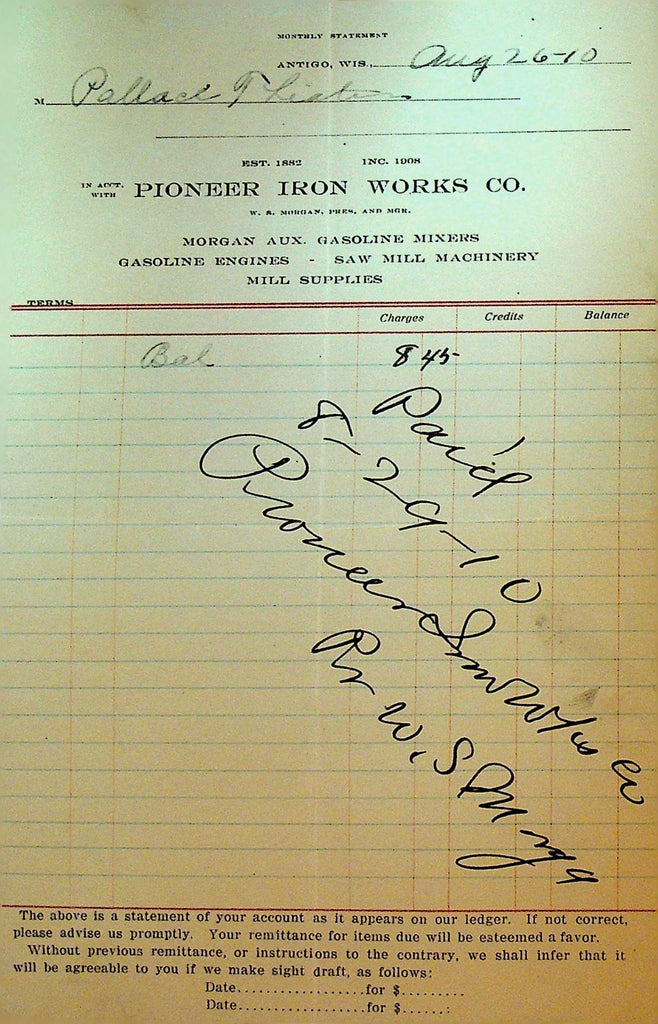 MONTHLY STATEMENT
ANTIGO, WIS., Aug 26-10
M
EST. 1882 INC. 1908
IN ACCT. WITH PIONEER IRON WORKS CO.
W. S. MORGAN, PRES. AND MGR.
MORGAN AUX. GASOLINE MIXERS
GASOLINE ENGINES - SAW MILL MACHINERY
MILL SUPPLIES
TERMS
Charges Credits Balance
Bal 8 45
Pai'd
8-29-10
Pioneer Iron Wks Co
Pr W. S Morgan
The above is a statement of your account as it appears on our ledger. If not correct,
please advise us promptly. Your remittance for items due will be esteemed a favor.
Without previous remittance, or instructions to the contrary, we shall infer that it
will be agreeable to you if we make sight draft, as follows:
Date.................for $.........
Date.................for $......: